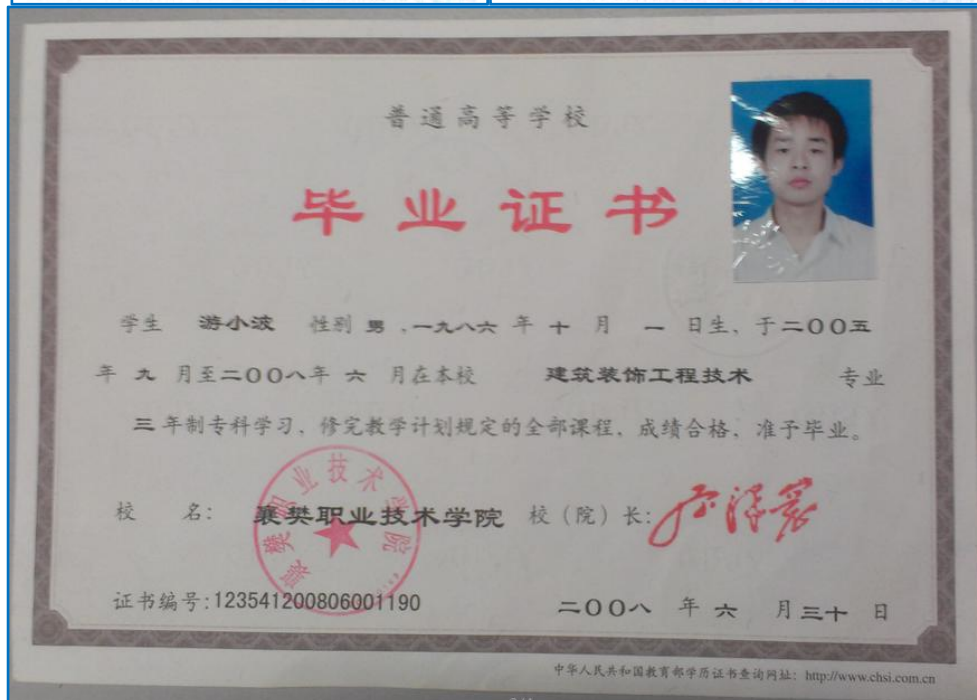 普通高等学校
毕业证书
学生 游小波 性别 男 ,一九八六 年 十 月 一 日生、于二〇〇五
年 九 月至二〇〇八年 六 月在本校 建筑装饰工程技术 专业
三 年制专科学习、修完教学计划规定的全部课程、成绩合格、准予毕业。
校 名: 襄樊职业技术学院 校(院)长:
襄樊职业技术学院
证书编号:123541200806001190 二〇〇八 年 六 月三十 日
中华人民共和国教育部学历证书查询网址: http://www.chsi.com.cn